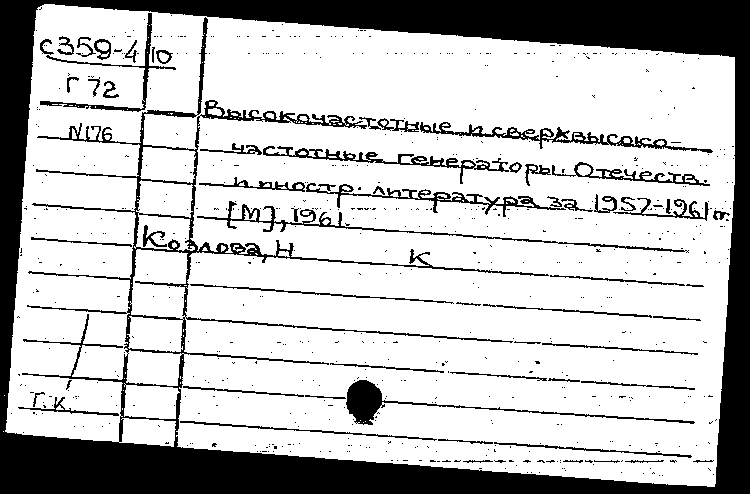 с359-4 10
Г 72
N176
Высокочастотные и сверхвысоко-
частотные генераторы. Отечеств.
и иностр. литература за 1957-1961 гг.
[М], 1961.
Козлова, Н К
Г.К.